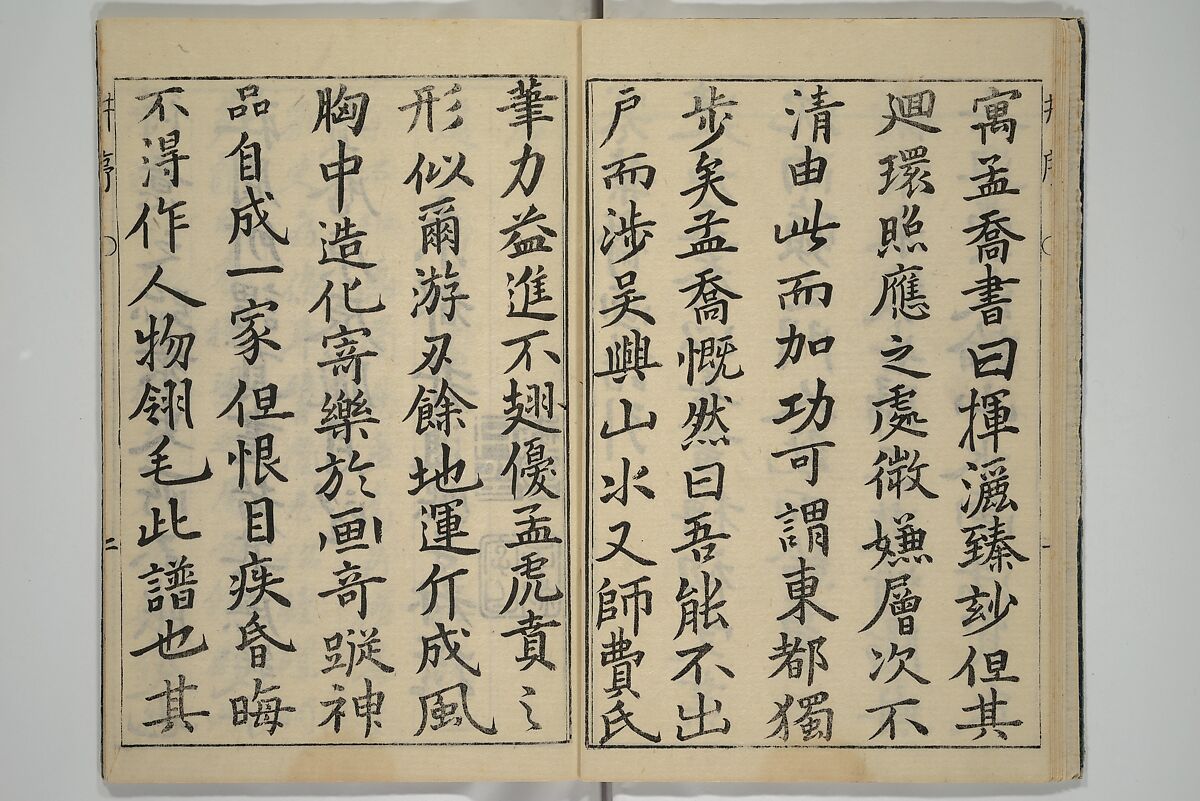 寓孟喬書曰揮灑臻玅但其
廻環照應之處微嫌層次不
清由此而加功可謂東都獨
步矣孟喬慨然曰吾能不出
戶而涉吴興山水又師費氏
筆力益進不翅優孟虎賁之
形似爾游刃餘地運斤成風
胸中造化寄樂於画奇蹤神
品自成一家但恨目疾昏晦
不得作人物翎毛此譜也其
序
二